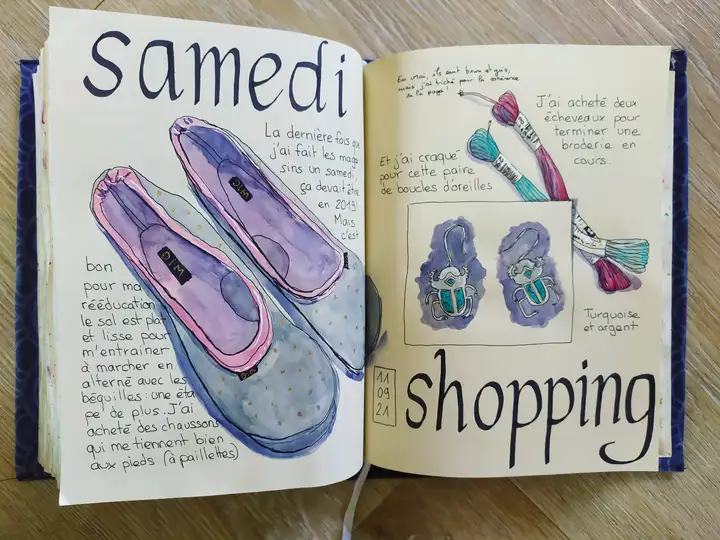 samedi
La dernière fois que
j'ai fait les maga
sins un samedi,
ça devait être
en 2019!
Mais
c'est
bon
pour ma
rééducation
le sol est plat
et lisse pour
m'entrainer
à marcher en
alterné avec les
béquilles : une éta
pe de plus. J'ai
acheté des chaussons
qui me tiennent bien
aux pieds (à paillettes)
DIM
DIM
DIM
DIM
En vrai, ils sont bruns et gris,
mais j'ai triché pour la cohérence
de la page!
J'ai acheté deux
écheveaux pour
terminer une
broderie en
cours.
Et j'ai craqué
pour cette paire
de boucles d'oreilles
Turquoise
et argent
11
09
21
shopping